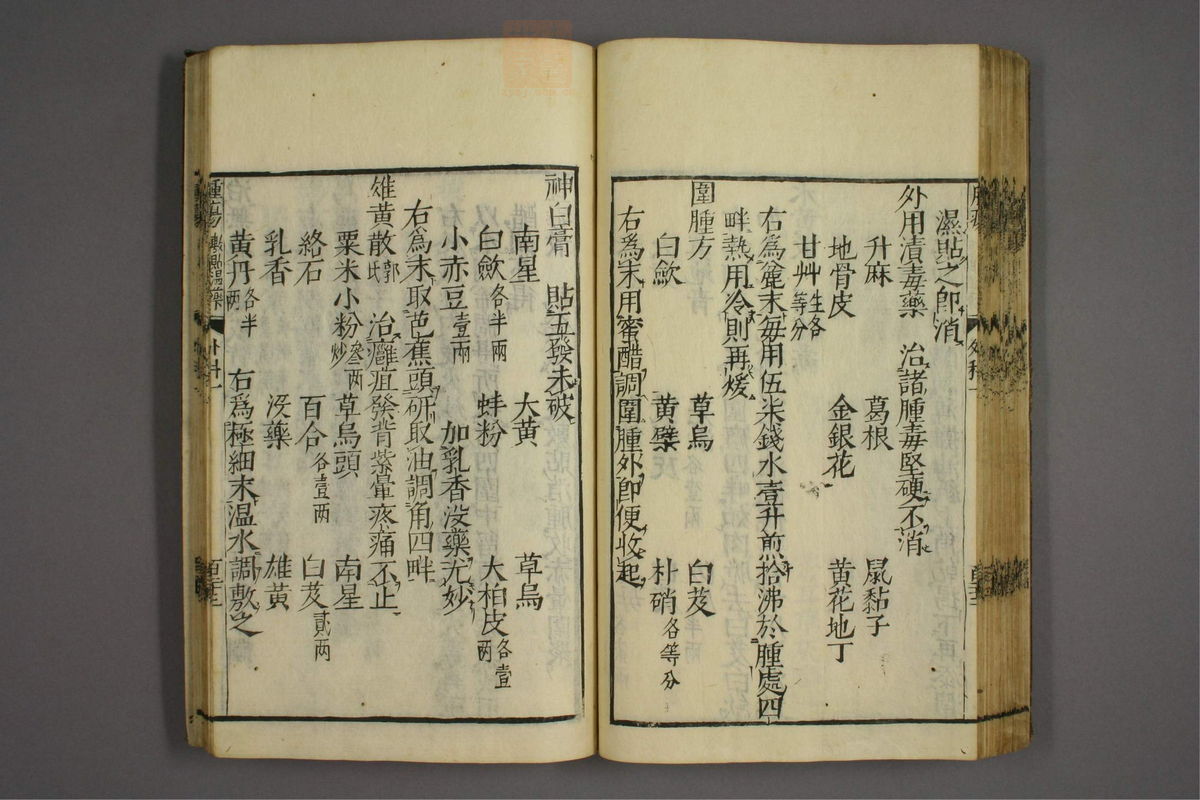 濕貼之卽消
外用漬毒藥　治諸腫毒堅硬不消
升麻　葛根　鼠黏子
地骨皮　金銀花　黃花地丁
甘艸生各等分
右爲麄末每用伍柒錢水壹升煎拾沸於腫處四
畔熱用冷則再煖
圍腫方　草烏　白芨
白歛　黃檗　朴硝各等分
右爲末用蜜醋調圍腫外卽便收起
神白膏　貼五發未破
南星　大黃　草烏
白歛各半兩　蚌粉　大柏皮各壹兩
小赤豆壹兩　加乳香没藥尤妙
右爲末取芭蕉頭研取油調角四畔
雄黃散郭氏　治癰疽發背紫暈疼痛不止
粟米小粉叁两炒　草烏頭　南星
絡石　百合各壹两　白芨貳两
乳香　没藥　雄黃
黃丹各半两　右爲極細末温水調敷之
腫瘍敷貼溻藥　外科一